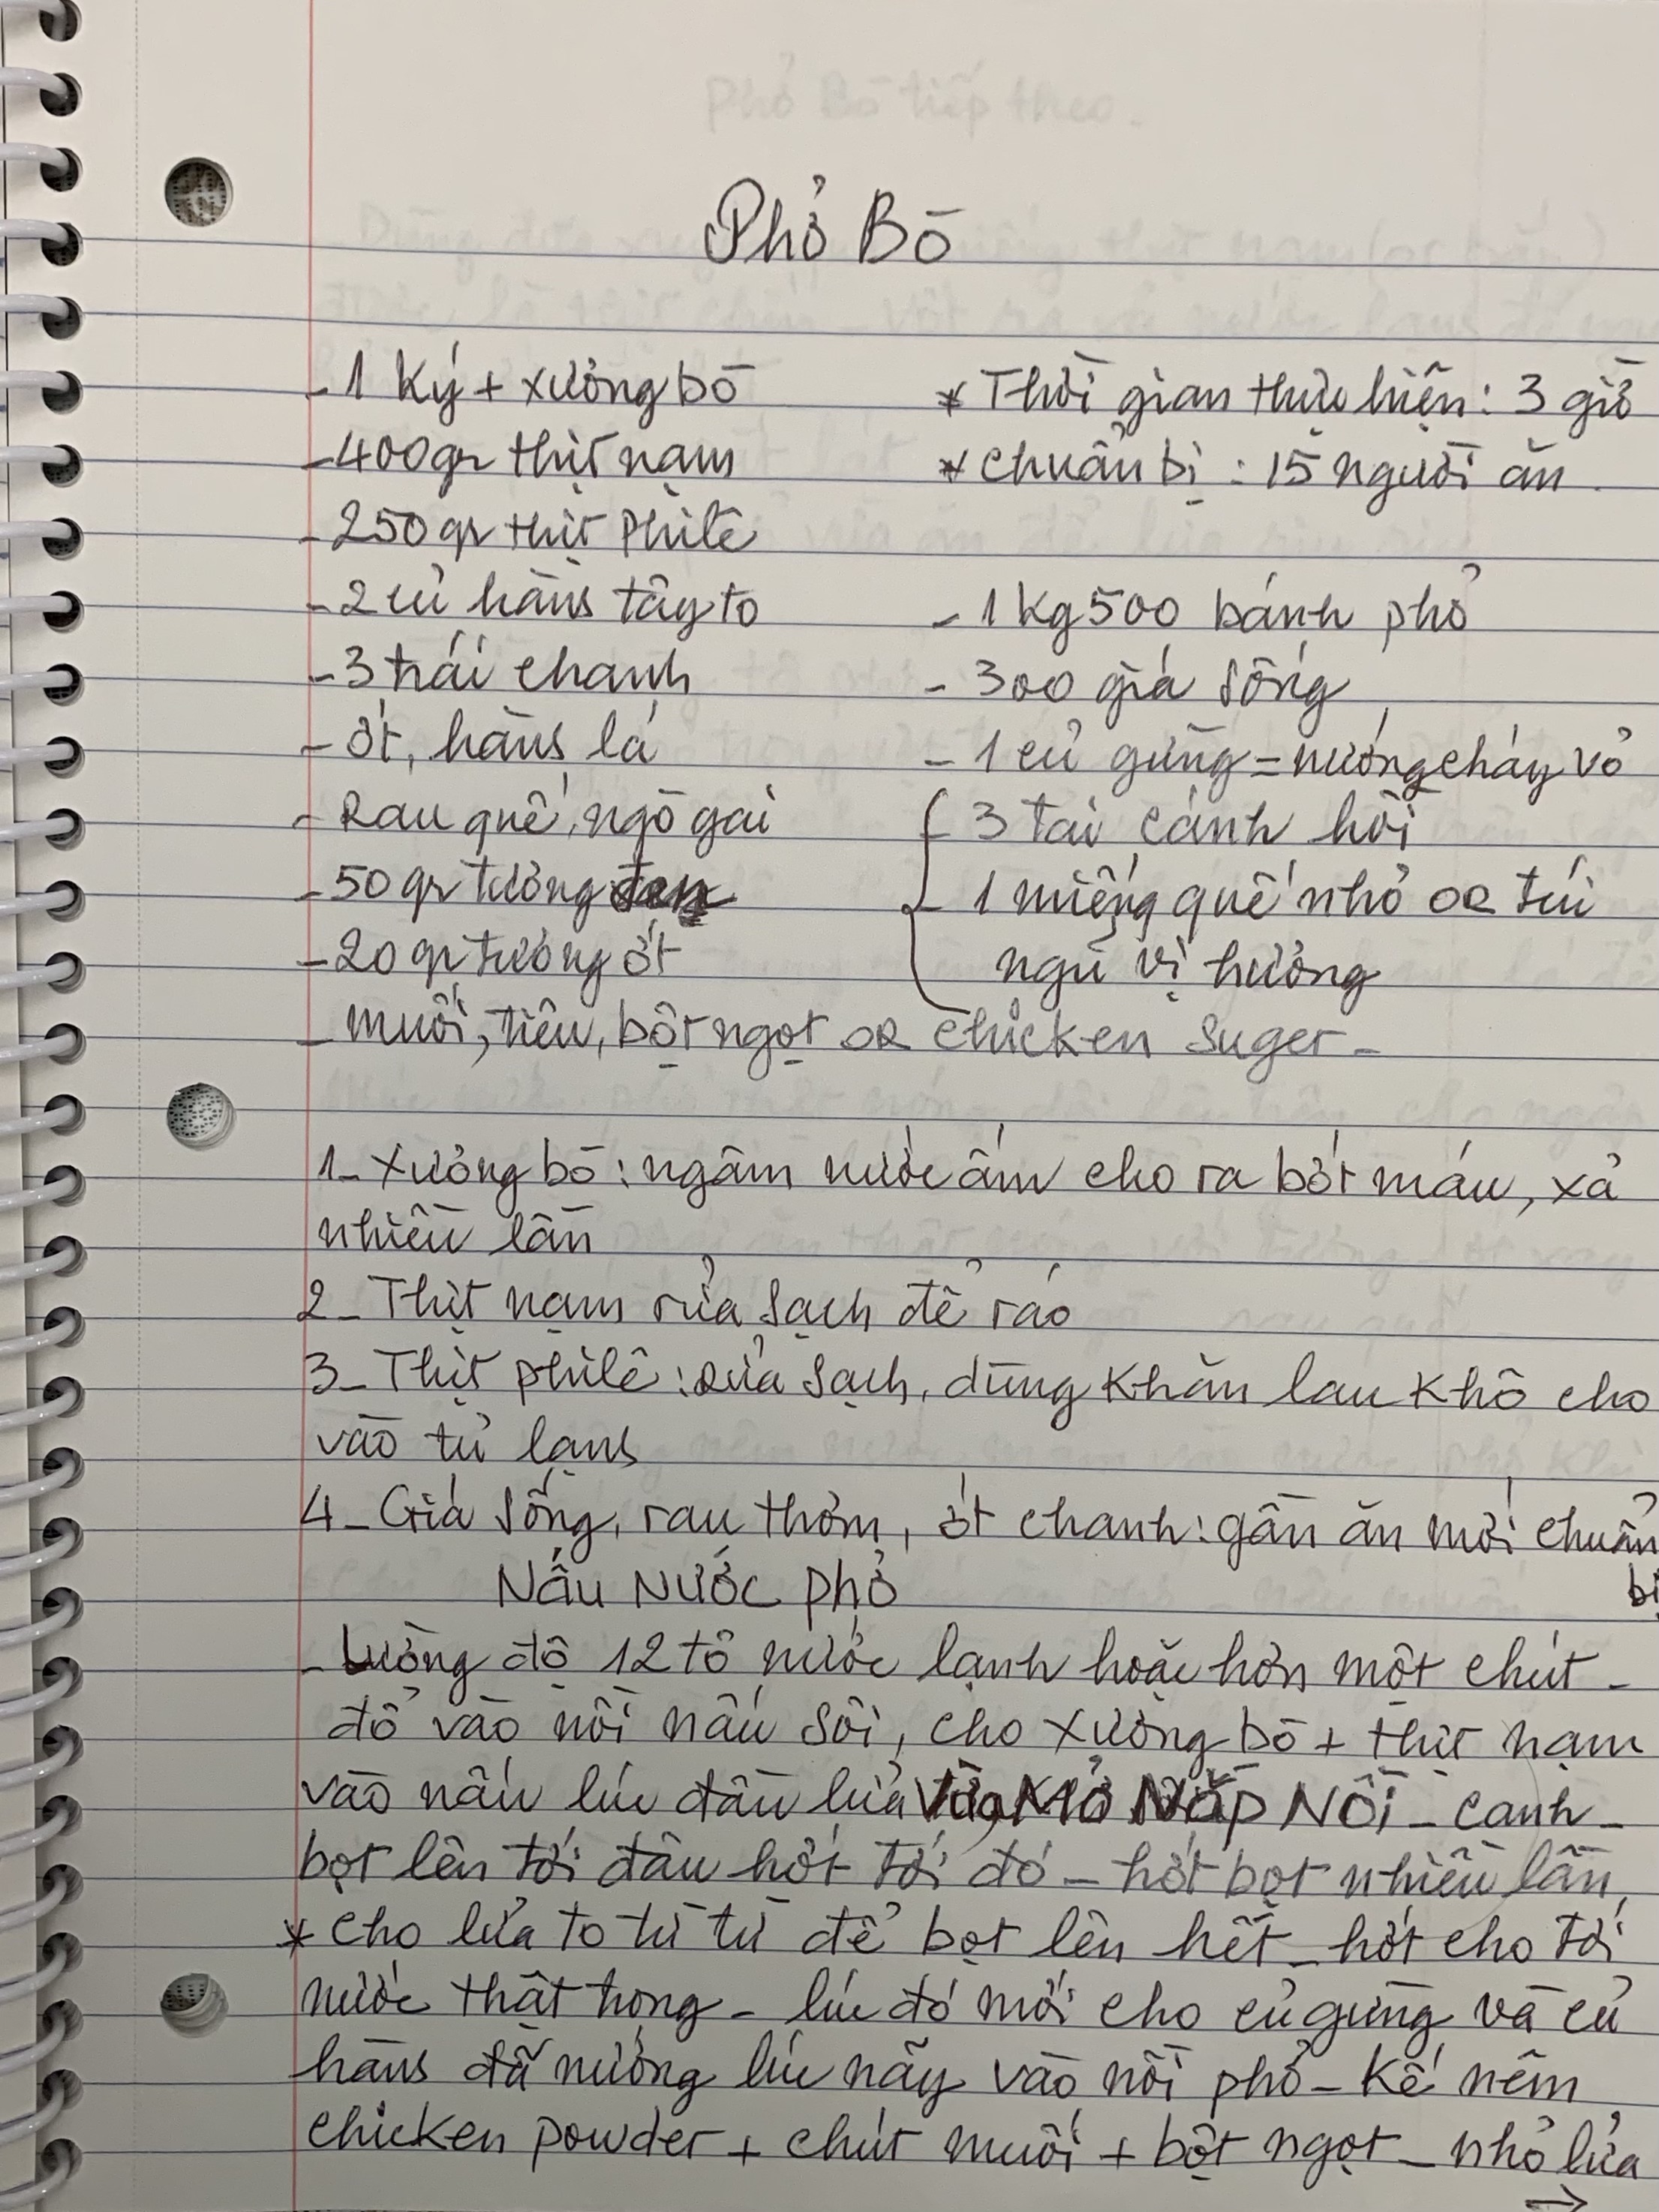 Phở Bò
- 1 Ký + xương bò
- 400gr thịt nạm
- 250 gr thịt Philê
- 2 củ hành tây to
- 3 trái chanh
- ớt, hành lá
- Rau quế, ngò gai
- 50 gr tương đen
- 20 gr tương ớt
- muối, tiêu, bột ngọt OR chicken suger -
* Thời gian thực hiện: 3 giờ
* chuẩn bị : 15 người ăn.
- 1 kg 500 bánh phở
- 300 giá sống
- 1 củ gừng = nướng cháy vỏ
3 tai cánh hồi
- 1 miếng quế nhỏ OR túi
ngũ vị hương
1- Xương bò : ngâm nước ấm cho ra bớt máu, xả
nhiều lần
2- Thịt nạm rửa sạch để ráo
3- Thịt philê : Rửa sạch, dùng khăn lau khô cho
vào tủ lạnh
4- Giá sống, rau thơm, ớt chanh : gần ăn mới chuẩn
bị
NẤU NƯỚC PHỞ
- Lường độ 12 tô nước lạnh hoặc hơn một chút -
đổ vào nồi nấu sôi, cho xương bò + thịt nạm
vào nấu lúc đầu lửa vừa, MỞ NẮP NỒI - canh -
bọt lên tới đâu hớt tới đó - hớt bọt nhiều lần,
* cho lửa to từ từ để bọt lên hết - hớt cho tới
nước thật trong - lúc đó mới cho củ gừng và củ
hành đã nướng lúc nãy vào nồi phở - Kế nêm
chicken powder + chút muối + bột ngọt - nhỏ lửa
→